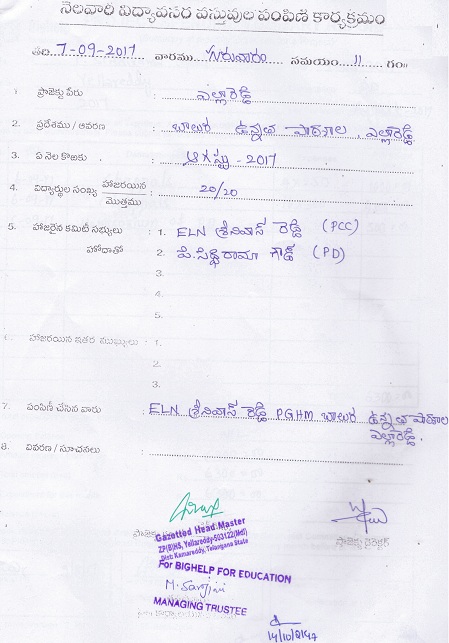 నెలవారి విద్యావసర వస్తువుల పంపిణి కార్యక్రమం
తేది 7-09-2017 వారము గురువారం సమయం 11 గం॥
1. ప్రాజెక్టు పేరు : ఎల్లారెడ్డి
2. ప్రదేశము / ఆవరణ : బాలుర ఉన్నత పాఠశాల, ఎల్లారెడ్డి
3. ఏ నెల కొఱకు : ఆగస్టు - 2017
4. విద్యార్థుల సంఖ్య హాజరయిన / మొత్తము : 20/20
5. హాజరైన కమిటీ సభ్యులు : 1. ELN శ్రీనివాస్ రెడ్డి (PCC)
హోదాతో 2. పి.సిద్ధిరామా గౌడ్ (PD)
3.
4.
5.
6. హాజరయిన ఇతర ముఖ్యులు : 1.
2.
3.
7. పంపిణీ చేసిన వారు : ELN శ్రీనివాస్ రెడ్డి PGHM బాలుర ఉన్నత పాఠశాల
ఎల్లారెడ్డి.
8. వివరణ / సూచనలు :
Gazetted Head Master
ZP(B)HS, Yellareddy-503122(Mdl)
Dist: Kamareddy, Telangana State
ప్రాజెక్టు డైరెక్టర్
For BIGHELP FOR EDUCATION
M. Sanjini
MANAGING TRUSTEE